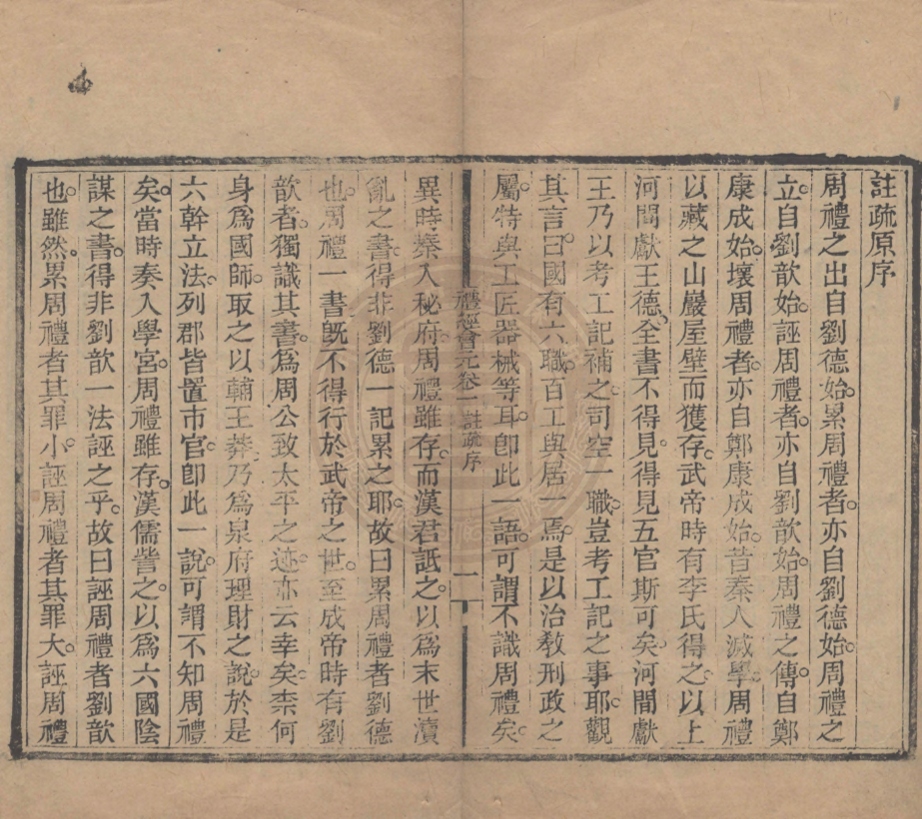 註疏原序
周禮之出自劉德始累周禮者亦自劉德始周禮之
立自劉歆始誣周禮者亦自劉歆始周禮之傳自鄭
康成始壞周禮者亦自鄭康成始昔秦人滅學周禮
以藏之山巖屋壁而獲存武帝時有李氏得之以上
河間獻王德全書不得見得見五官斯可矣河間獻
王乃以考工記補之司空一職豈考工記之事耶觀
其言曰國有六職百工與居一焉是以治敎刑政之
屬特與工匠器械等耳卽此一語可謂不識周禮矣
禮經會元卷一 註疏序 一
異時奏入秘府周禮雖存而漢君詆之以爲末世瀆
亂之書得非劉德一記累之耶故曰累周禮者劉德
也周禮一書旣不得行於武帝之世至成帝時有劉
歆者獨識其書爲周公致太平之迹亦云幸矣柰何
身爲國師取之以輔王莽乃爲泉府理財之說於是
六幹立法列郡皆置市官卽此一說可謂不知周禮
矣當時奏入學官周禮雖存漢儒訾之以爲六國陰
謀之書得非劉歆一法誣之乎故曰誣周禮者劉歆
也雖然累周禮者其罪小誣周禮者其罪大誣周禮